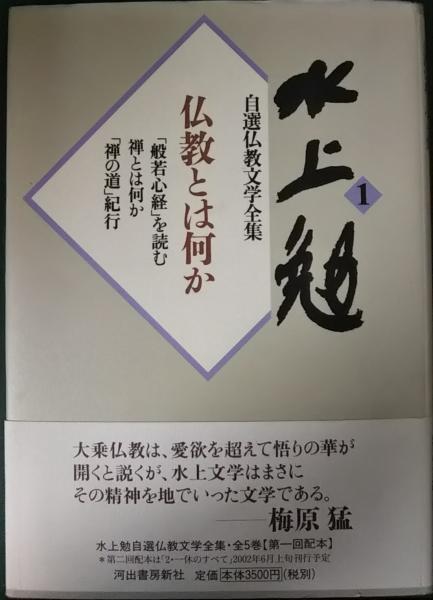 水上勉
1
自選仏教文学全集
仏教とは何か
「般若心経」を読む
禅とは何か
「禅の道」紀行
大乗仏教は、愛欲を超えて悟りの華が
開くと説くが、水上文学はまさに
その精神を地でいった文学である。
——梅原 猛
水上勉自選仏教文学全集・全5巻【第一回配本】
*第二回配本は「2・一休のすべて」2002年6月上旬刊行予定
河出書房新社 定価 本体3500円(税別)